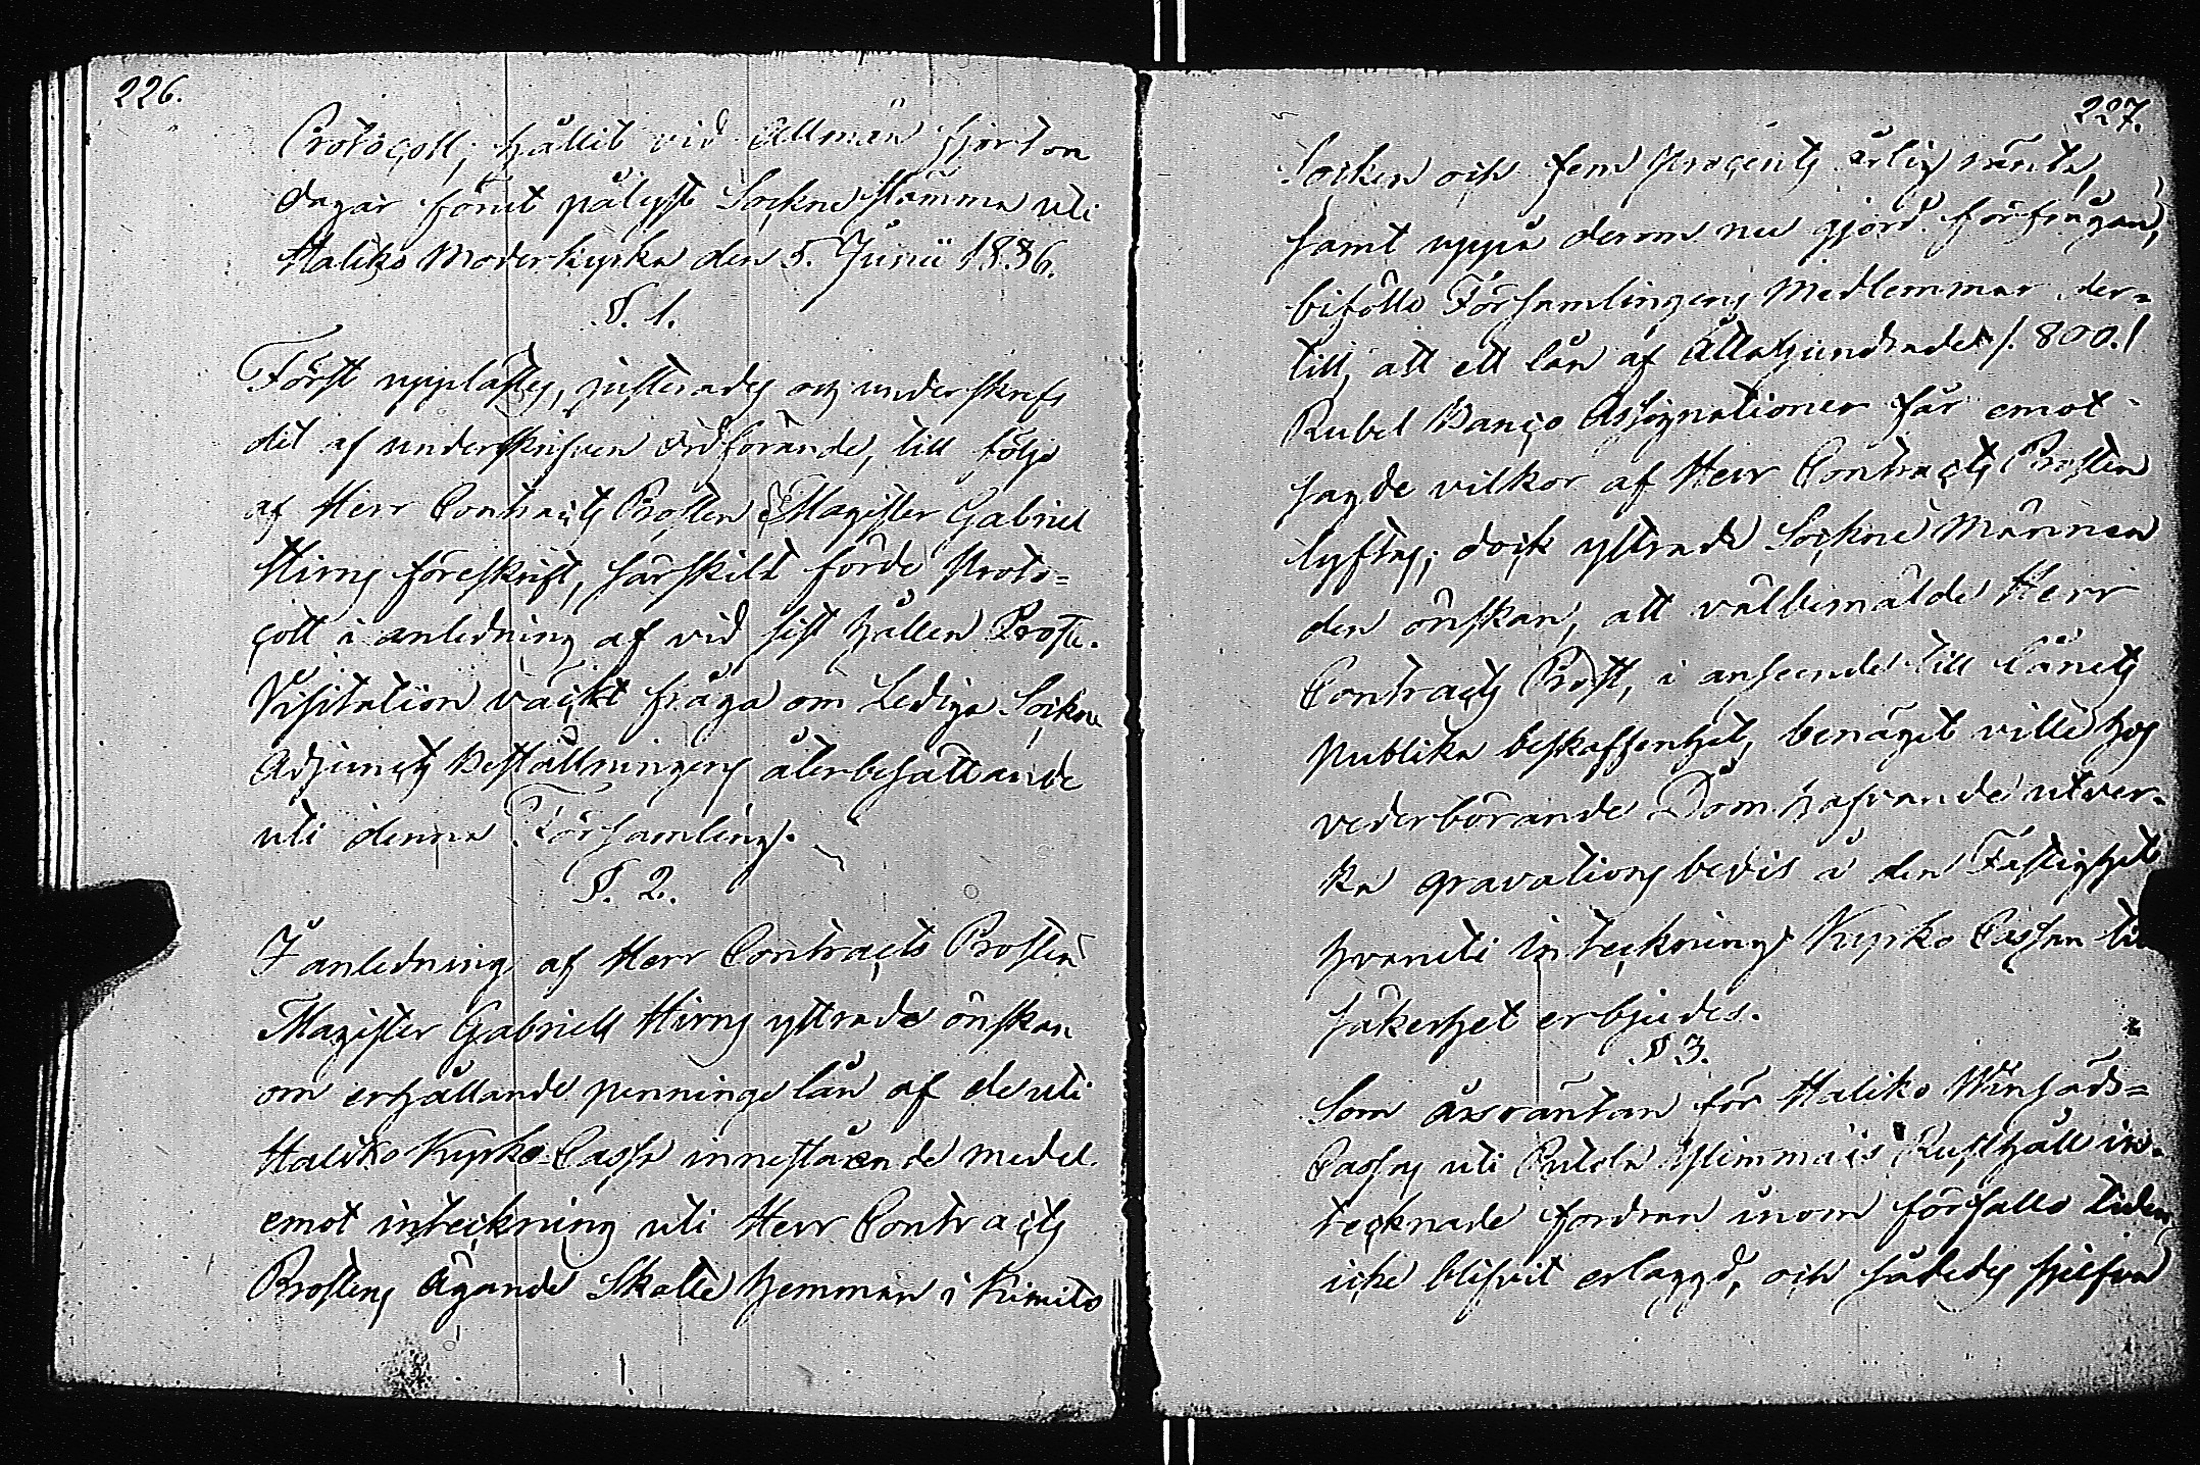 226.
Protocoll, hållit vid Allmän fjorton
dagar förut pålyst Sockne Stämma uti
Haliko Moderkyrka den 5. Junii 1836.
§. 1.
Först upplästes, justerades och underskrefs
det af underskrifven Ordförande, till följe
af Herr Contracts Prosten & Magister Gabriel
Hirns föreskrift, särskilt förde Proto=
coll i anledning af vid sist hållen Proste-
Visitation väckt fråga om Lediga Sockne
Adjuncts Beställningens återbesättande
uti denna Församling.
§. 2.
I anledning af Herr Contracts Prosten
Magister Gabriell Hirns yttrade önskan
om erhållande penninge lån af de uti
Haliko Kyrko-Cassa innestående medel
emot inteckning uti Herr Contracts
Prostens Ägande Skatte hemman i Kimito
227.
Socken och fem procents årlig ränta,
samt uppå derom nu gjord förfrågan,
biföllo Församlingens Medlemmar der=
till, att ett lån af Åttahundrade /. 800./
Rubel Banco Assignationer får emot
sagde vilkor af Herr Contracts Prosten
lyftas; dock yttrade Sockne Männen
den önskan, att välbemälde Herr
Contracts Prost, i anseende till Lånets
publika beskaffenhet, benäget ville hos
vederbörande Domhafvande utver=
ka gravations bevis å den Fastighet
hvaruti inteckning Kyrko Cassan till
säkerhet erbjudes.
§ 3.
Som årsräntan för Haliko Winhåds=
Cassas uti Putela Ylimmäis Rusthåll in-
tecknade fordran inom förfallo tiden
icke blifvit erlaggd, och således sjelfva